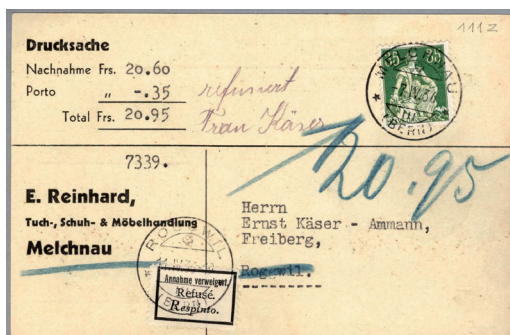 111z
Drucksache
Nachnahme Frs. 20.60
Porto „ -.35
Total Frs. 20.95
refusiert
Frau Käser
35 35
MELCHNAU
(BERN)
20.95
7339.
E. Reinhard,
Tuch-, Schuh- & Möbelhandlung
Melchnau
Herrn
Ernst Käser - Ammann,
Freiberg,
Roggwil.
ROGGWIL
(BERN)
Annahme verweigert.
Refusé.
Respinto.